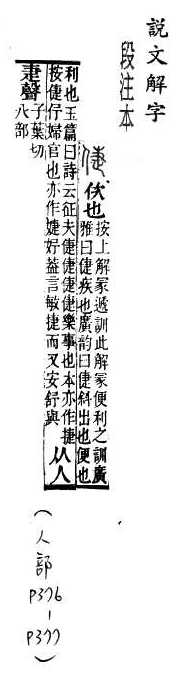 說文解字
段注本
倢
佽也
按上解冡遞訓此解冡便利之訓廣
雅曰倢疾也廣韵曰倢斜出也便也
利也玉篇曰詩云征夫倢倢倢倢樂事也本亦作捷
按倢伃婦官也亦作婕妤葢言敏捷而又安舒與
从人
疌聲
子葉切
八部
(人部 P376-P377)